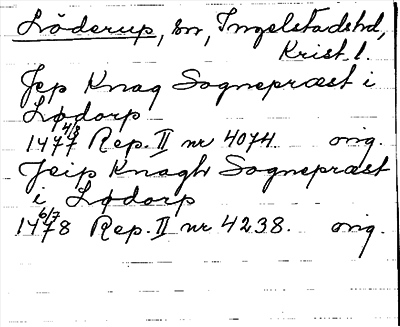 Löderup, sn, Ingelstadshd,
Krist. l.
Jep Knag Sognepræst i
Lødorp
1477 4/8 Rep. II nr 4074. orig.
Jeip Knagh Sognepræst
i Lødorp
1478 6/7 Rep. II nr 4238. orig.